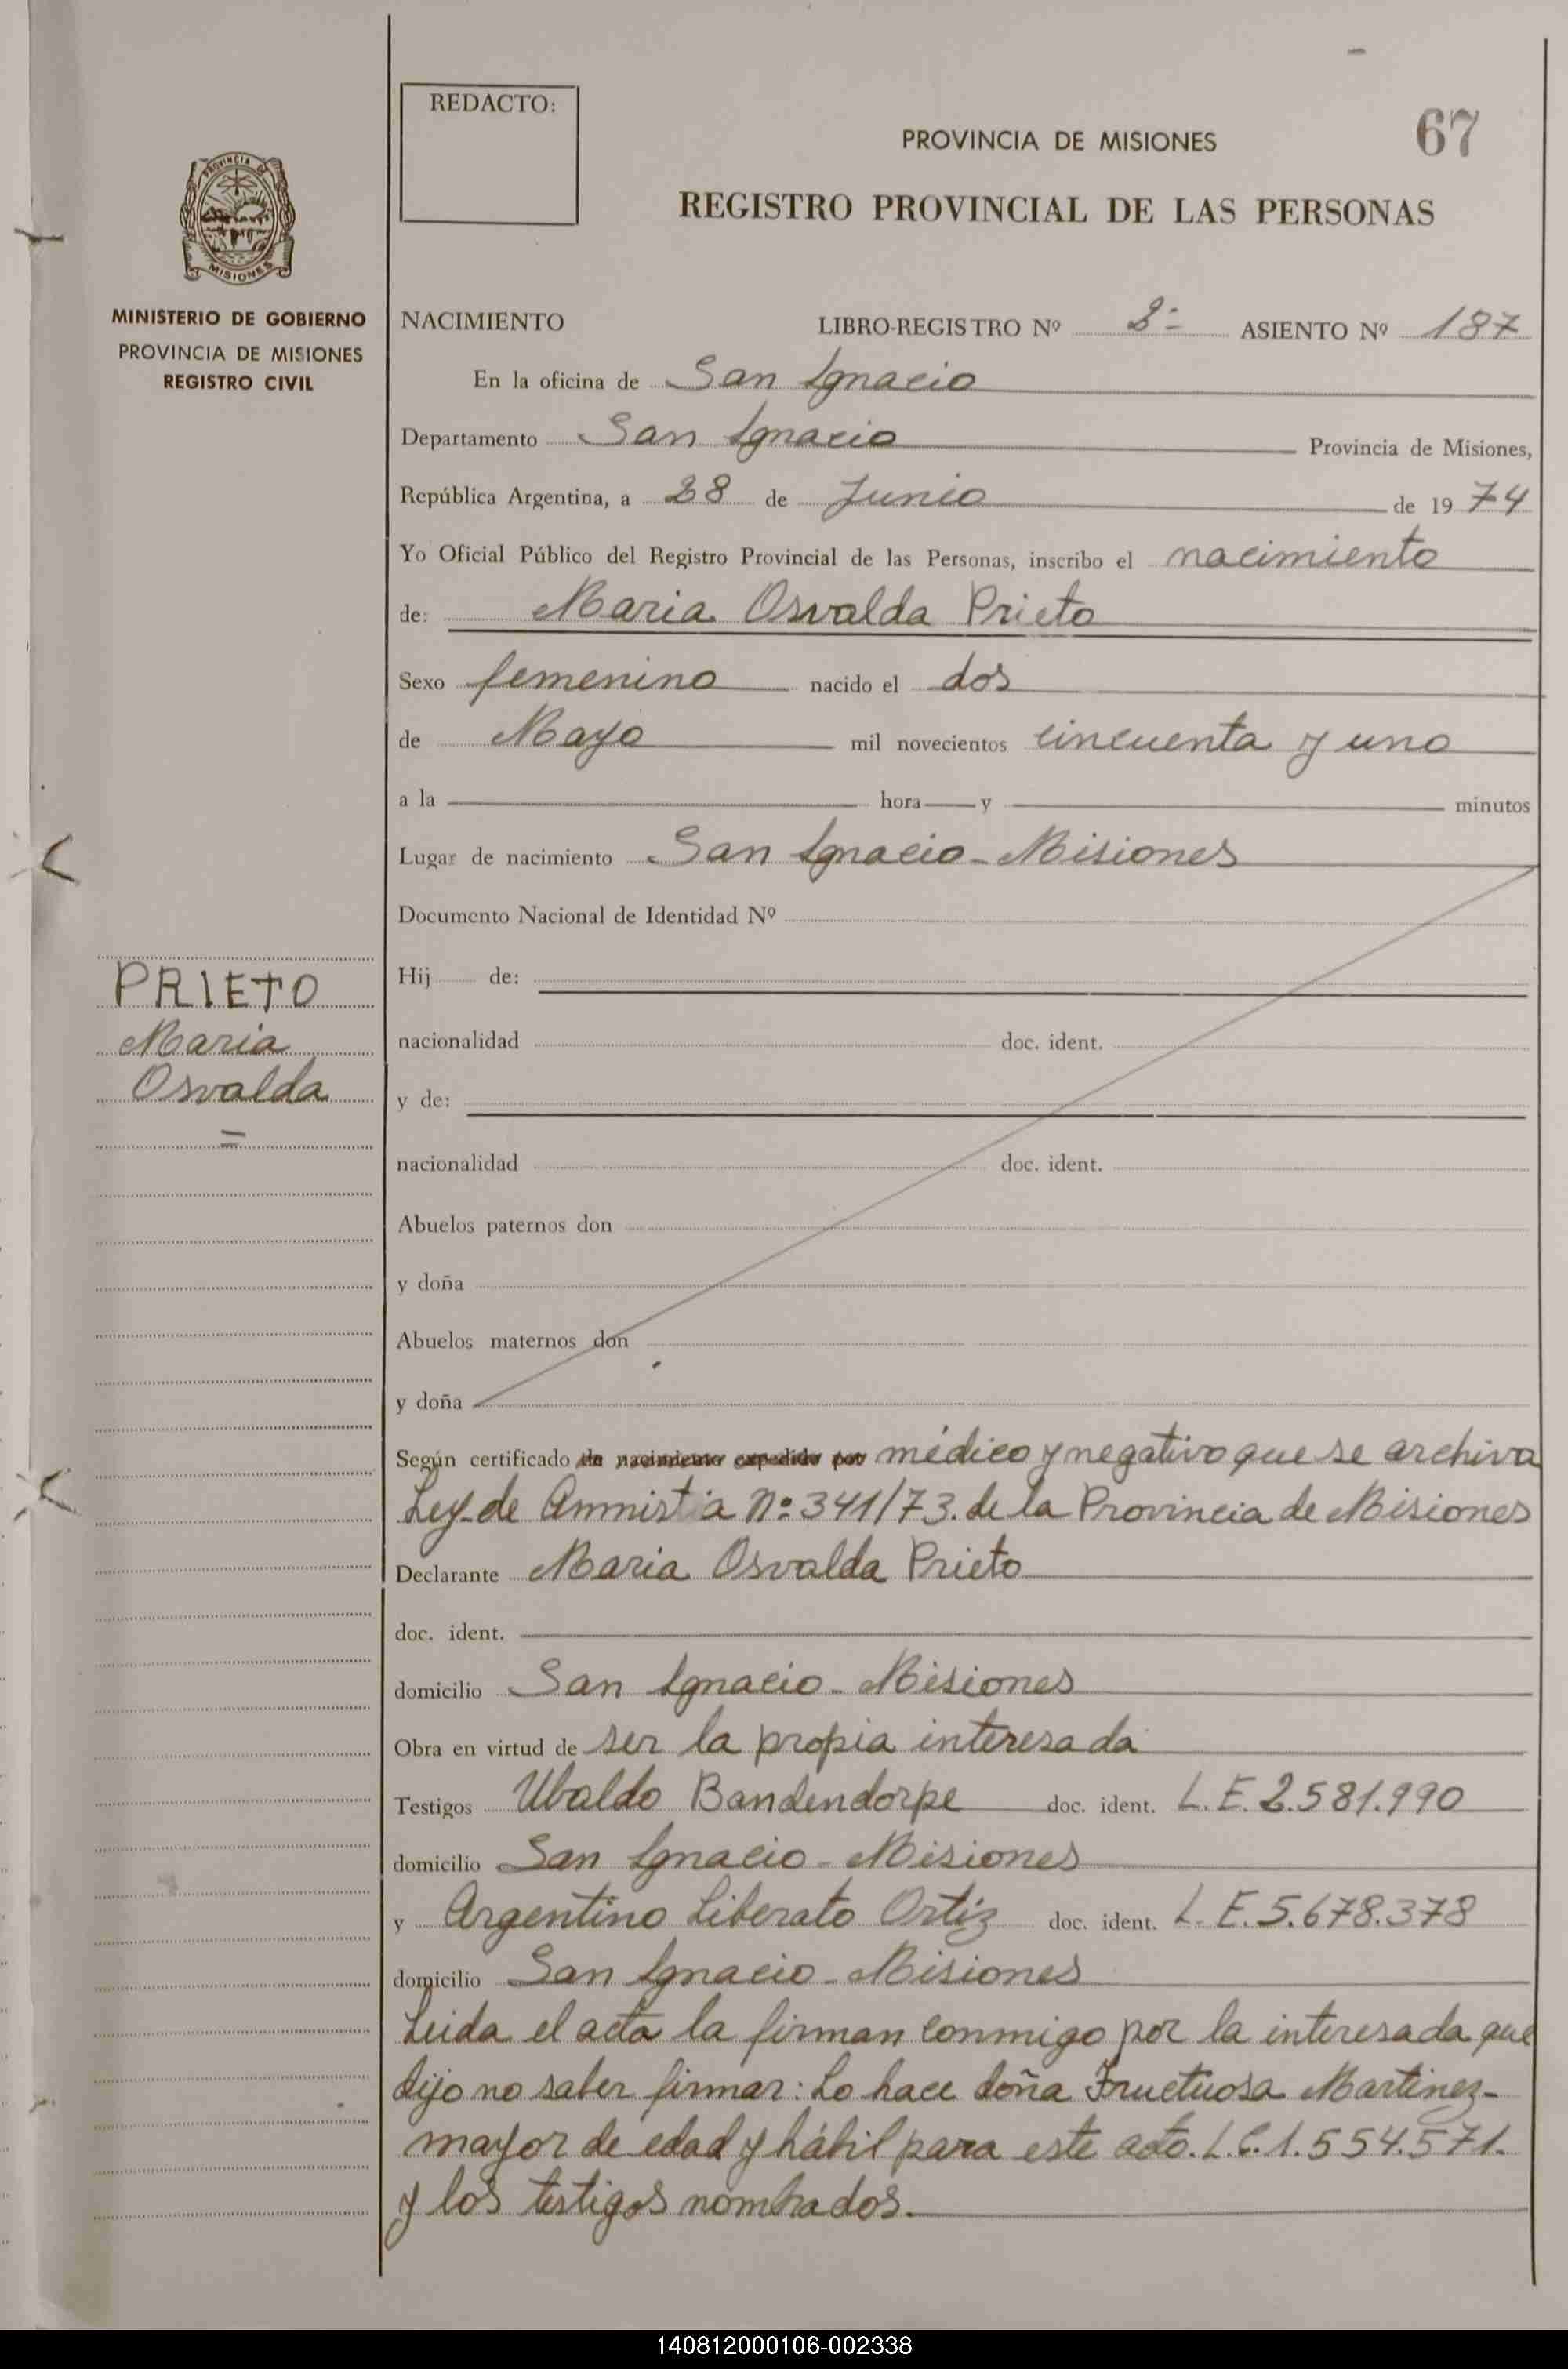 REDACTO:
PROVINCIA DE MISIONES
67
REGISTRO PROVINCIAL DE LAS PERSONAS
PROVINCIA DE
MISIONES
MINISTERIO DE GOBIERNO
PROVINCIA DE MISIONES
REGISTRO CIVIL
NACIMIENTO LIBRO-REGISTRO Nº 2º ASIENTO Nº 187
En la oficina de San Ignacio
Departamento San Ignacio Provincia de Misiones,
República Argentina, a 28 de Junio de 1974
Yo Oficial Público del Registro Provincial de las Personas, inscribo el nacimiento
de: Maria Osvalda Prieto
Sexo femenino nacido el dos
de Mayo mil novecientos cincuenta y uno
a la hora y minutos
Lugar de nacimiento San Ignacio - Misiones
Documento Nacional de Identidad Nº
PRIETO
Maria
Osvalda
Hij de:
nacionalidad doc. ident.
y de:
nacionalidad doc. ident.
Abuelos paternos don
y doña
Abuelos maternos don
y doña
Según certificado de nacimiento expedido por médico y negativo que se archiva
Ley de Amnistia Nº 341/73. de la Provincia de Misiones
Declarante Maria Osvalda Prieto
doc. ident.
domicilio San Ignacio - Misiones
Obra en virtud de ser la propia interesada
Testigos Ubaldo Bandendorpe doc. ident. L.E. 2.581.990
domicilio San Ignacio - Misiones
y Argentino Liberato Ortiz doc. ident. L.E. 5.678.378
domicilio San Ignacio - Misiones
Leida el acta la firman conmigo por la interesada que
dijo no saber firmar: Lo hace doña Fructuosa Martinez-
mayor de edad y hábil para este acto. L.C. 1.554.571.
y los testigos nombrados.
140812000106-002338